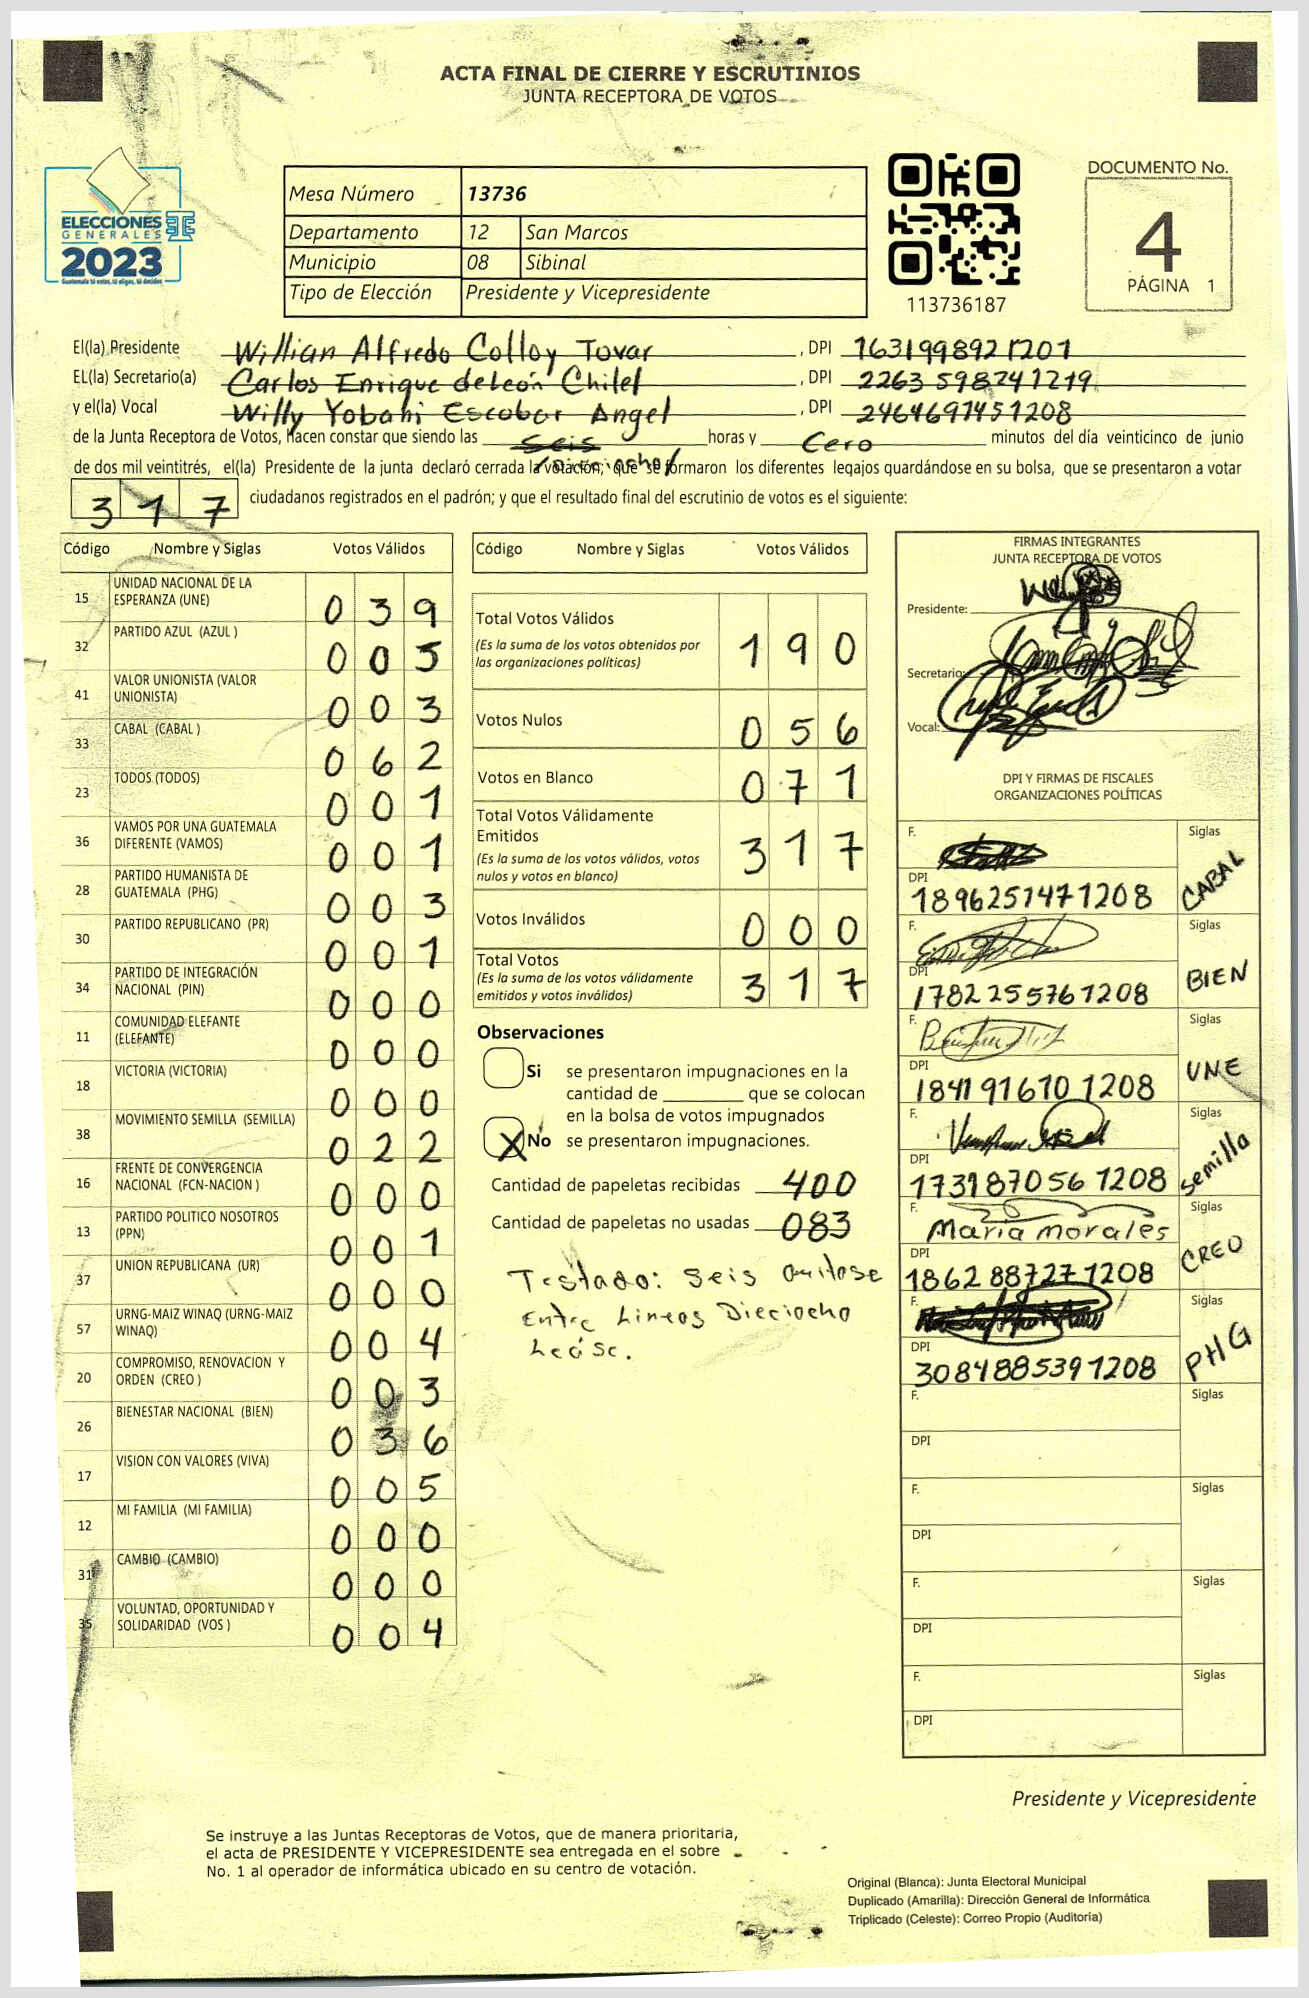 ACTA FINAL DE CIERRE Y ESCRUTINIOS
JUNTA RECEPTORA DE VOTOS
ELECCIONES
GENERALES
2023
Guatemala tú votas, tú eliges, tú decides
Mesa Número 13736
Departamento 12 San Marcos
Municipio 08 Sibinal
Tipo de Elección Presidente y Vicepresidente
113736187
DOCUMENTO No.
4
PÁGINA 1
El(la) Presidente Willian Alfredo Colloy Tovar, DPI 1631998921201
EL(la) Secretario(a) Carlos Enrique deLeón Chilel, DPI 2263598241219
y el(la) Vocal Willy Yobahi Escobar Angel, DPI 2464697451208
de la Junta Receptora de Votos, hacen constar que siendo las Seis horas y Cero minutos del día veinticinco de junio
/Dieciocho/
de dos mil veintitrés, el(la) Presidente de la junta declaró cerrada la votación; que se formaron los diferentes legajos guardándose en su bolsa, que se presentaron a votar
317 ciudadanos registrados en el padrón; y que el resultado final del escrutinio de votos es el siguiente:
Código Nombre y Siglas Votos Válidos
15 UNIDAD NACIONAL DE LA ESPERANZA (UNE) 039
32 PARTIDO AZUL (AZUL ) 005
41 VALOR UNIONISTA (VALOR UNIONISTA) 003
33 CABAL (CABAL ) 062
23 TODOS (TODOS) 001
36 VAMOS POR UNA GUATEMALA DIFERENTE (VAMOS) 001
28 PARTIDO HUMANISTA DE GUATEMALA (PHG) 003
30 PARTIDO REPUBLICANO (PR) 001
34 PARTIDO DE INTEGRACIÓN NACIONAL (PIN) 000
11 COMUNIDAD ELEFANTE (ELEFANTE) 000
18 VICTORIA (VICTORIA) 000
38 MOVIMIENTO SEMILLA (SEMILLA) 022
16 FRENTE DE CONVERGENCIA NACIONAL (FCN-NACION ) 000
13 PARTIDO POLITICO NOSOTROS (PPN) 001
37 UNION REPUBLICANA (UR) 000
57 URNG-MAIZ WINAQ (URNG-MAIZ WINAQ) 004
20 COMPROMISO, RENOVACION Y ORDEN (CREO ) 003
26 BIENESTAR NACIONAL (BIEN) 036
17 VISION CON VALORES (VIVA) 005
12 MI FAMILIA (MI FAMILIA) 000
31 CAMBIO (CAMBIO) 000
35 VOLUNTAD, OPORTUNIDAD Y SOLIDARIDAD (VOS ) 004
Código Nombre y Siglas Votos Válidos
Total Votos Válidos 190
(Es la suma de los votos obtenidos por
las organizaciones políticas)
Votos Nulos 056
Votos en Blanco 071
Total Votos Válidamente
Emitidos 317
(Es la suma de los votos válidos, votos
nulos y votos en blanco)
Votos Inválidos 000
Total Votos 317
(Es la suma de los votos válidamente
emitidos y votos inválidos)
Observaciones
Si se presentaron impugnaciones en la
cantidad de ________ que se colocan
en la bolsa de votos impugnados
X No se presentaron impugnaciones.
Cantidad de papeletas recibidas 400
Cantidad de papeletas no usadas 083
Testado: Seis omitase
Entre Lineas Dieciocho
Leáse.
FIRMAS INTEGRANTES
JUNTA RECEPTORA DE VOTOS
Presidente:
Secretario:
Vocal:
DPI Y FIRMAS DE FISCALES
ORGANIZACIONES POLÍTICAS
F. Siglas
DPI 1896251471208 CABAL
F. Siglas
DPI 1782255761208 BIEN
F. Siglas
DPI 1841916701208 UNE
F. Siglas
DPI 1731870561208 Semilla
F. Maria morales Siglas
DPI 1862887271208 CREO
F. Siglas
DPI 3084885391208 PHG
F. Siglas
DPI
F. Siglas
DPI
F. Siglas
DPI
F. Siglas
DPI
Presidente y Vicepresidente
Se instruye a las Juntas Receptoras de Votos, que de manera prioritaria,
el acta de PRESIDENTE Y VICEPRESIDENTE sea entregada en el sobre
No. 1 al operador de informática ubicado en su centro de votación.
Original (Blanca): Junta Electoral Municipal
Duplicado (Amarilla): Dirección General de Informática
Triplicado (Celeste): Correo Propio (Auditoría)